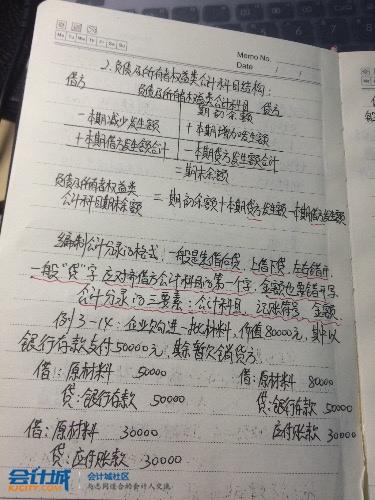 Memo No.
Mo Tu We Th Fr Sa Su
Date / /
2.负债及所有者权益类会计科目结构:
借方 负债及所有者权益类会计科目 贷方
期初余额
-本期减少发生额 +本期增加发生额
+本期借方发生额合计 -本期贷方发生额合计
=期末余额
负债及所有者权益类
会计科目期末余额 = 期初余额+本期贷方发生额-本期借方发生额
编制会计分录的格式,一般是先借后贷,上借下贷,左右错开,
一般“贷”字应对齐借方会计科目的第一个字,金额也要错开写。
会计分录的三要素:会计科目、记账符号、金额。
例3-14:企业购进一批材料,价值80000元,其中以
银行存款支付50000元,其余暂欠销货方
借:原材料 50000 借:原材料 80000
贷:银行存款 50000 贷:银行存款 50000
借:原材料 30000 应付账款 30000
贷:应付账款 30000
会计城
KJCITY.COM
会计城社区
与志同道合的会计人交流